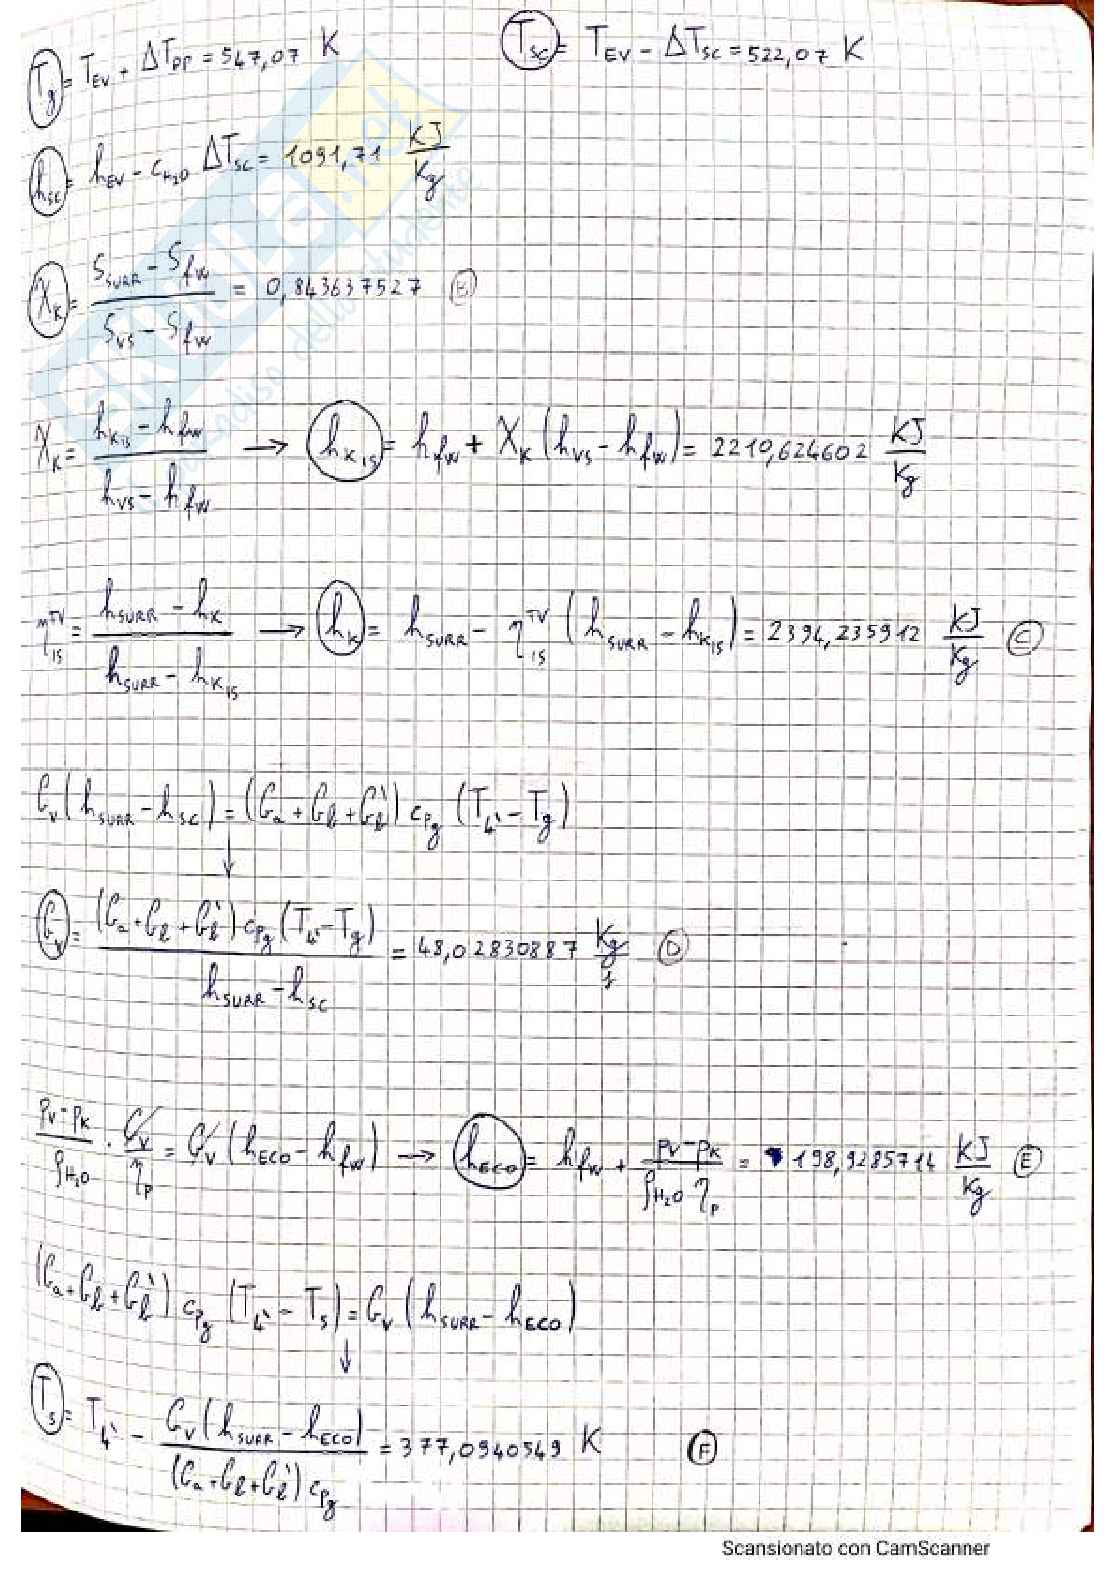 T_g = T_EV + ΔT_PP = 547,07 K
T_SC = T_EV - ΔT_SC = 522,07 K
h_SC = h_EV - c_H2O ΔT_SC = 1091,71 KJ/Kg
X_K = (S_SURR - S_fw)/(S_VS - S_fw) = 0,843637527 (B)
X_K = (h_K_IS - h_fw)/(h_VS - h_fw) → h_K_IS = h_fw + X_K (h_VS - h_fw) = 2210,624602 KJ/Kg
η_IS^TV = (h_SURR - h_K)/(h_SURR - h_K_IS) → h_K = h_SURR - η_IS^TV (h_SURR - h_K_IS) = 2394,235912 KJ/Kg (C)
G_v (h_SURR - h_SC) = (G_a + G_b + G_b') c_pg (T_4' - T_g)
↓
G_v = (G_a + G_b + G_b') c_pg (T_4' - T_g)/(h_SURR - h_SC) = 48,02830887 Kg/s (D)
(p_V - p_K)/ρ_H2O · G_v/η_p = G_v (h_ECO - h_fw) → h_ECO = h_fw + (p_V - p_K)/(ρ_H2O η_p) = 198,9285714 KJ/Kg (E)
(G_a + G_b + G_b') c_pg (T_4' - T_5) = G_v (h_SURR - h_ECO)
↓
T_5 = T_4' - G_v (h_SURR - h_ECO)/((G_a + G_b + G_b') c_pg) = 377,0940549 K (F)
Scansionato con CamScanner